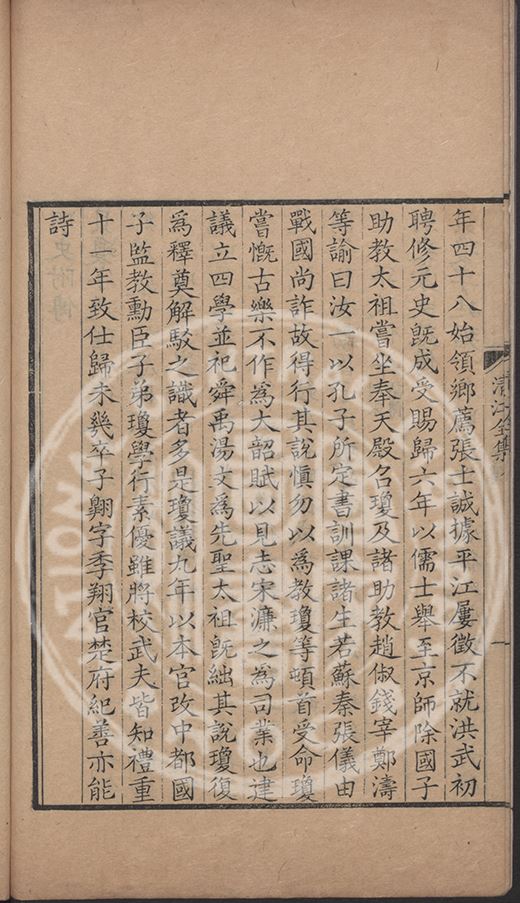 年四十八始領鄉薦張士誠據平江屢徵不就洪武初
聘修元史旣成受賜歸六年以儒士舉至京師除國子
助教太祖嘗坐奉天殿召瓊及諸助教趙俶錢宰鄭濤
等諭曰汝一以孔子所定書訓課諸生若蘇秦張儀由
戰國尚詐故得行其說愼勿以爲教瓊等頓首受命瓊
嘗慨古樂不作爲大韶賦以見志宋濂之爲司業也建
議立四學並祀舜禹湯文爲先聖太祖旣絀其說瓊復
爲釋奠解駁之識者多是瓊議九年以本官改中都國
子監教勳臣子弟瓊學行素優雖將校武夫皆知禮重
十一年致仕歸未幾卒子翺字季翔官楚府紀善亦能
詩
清江全集
一